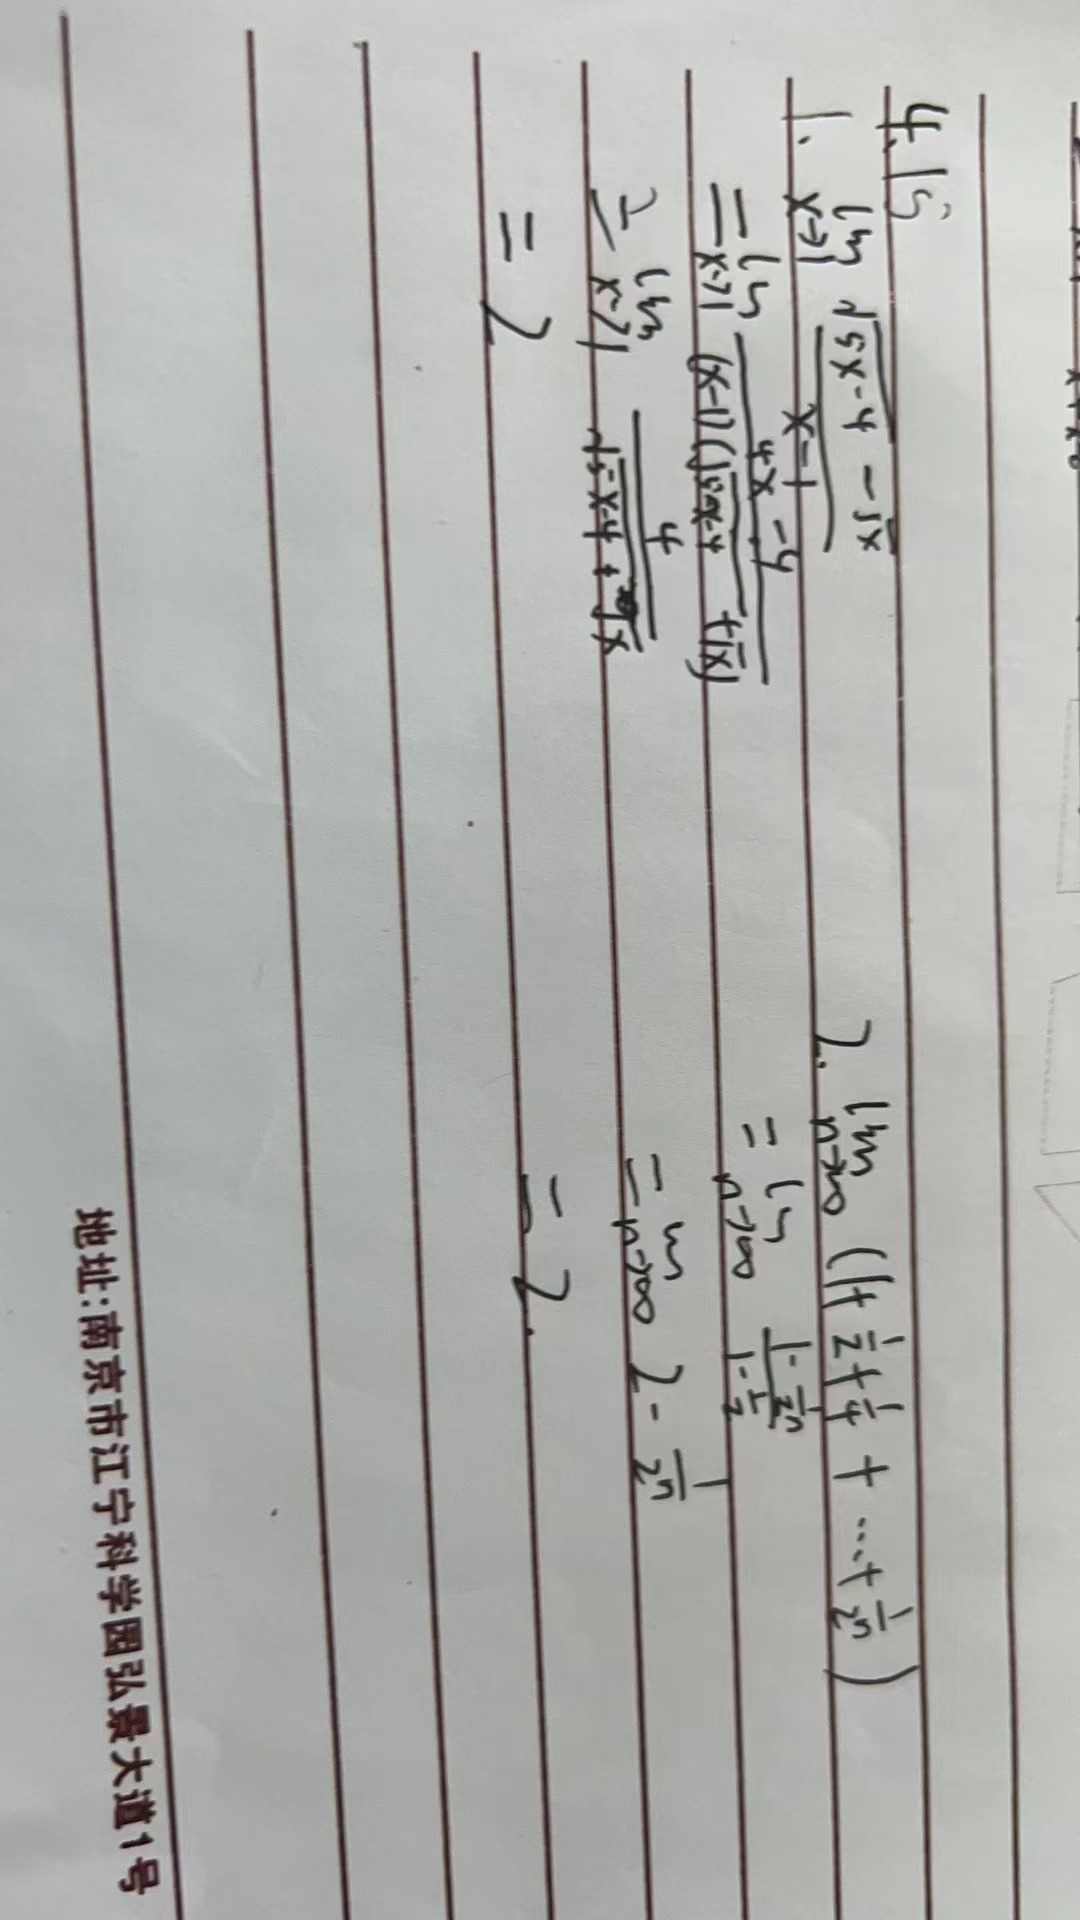 4.15
1. lim x→1 (√(5x-4) - √x)/(x-1)
= lim x→1 (4x-4)/((x-1)(√(5x-4) + √x))
= lim x→1 4/(√(5x-4) + √x)
= 2
2. lim n→∞ (1+1/2+1/4+…+1/2^n)
= lim n→∞ (1-1/2^n)/(1-1/2)
= lim n→∞ 2 - 1/2^n
= 2.
地址:南京市江宁科学园弘景大道1号